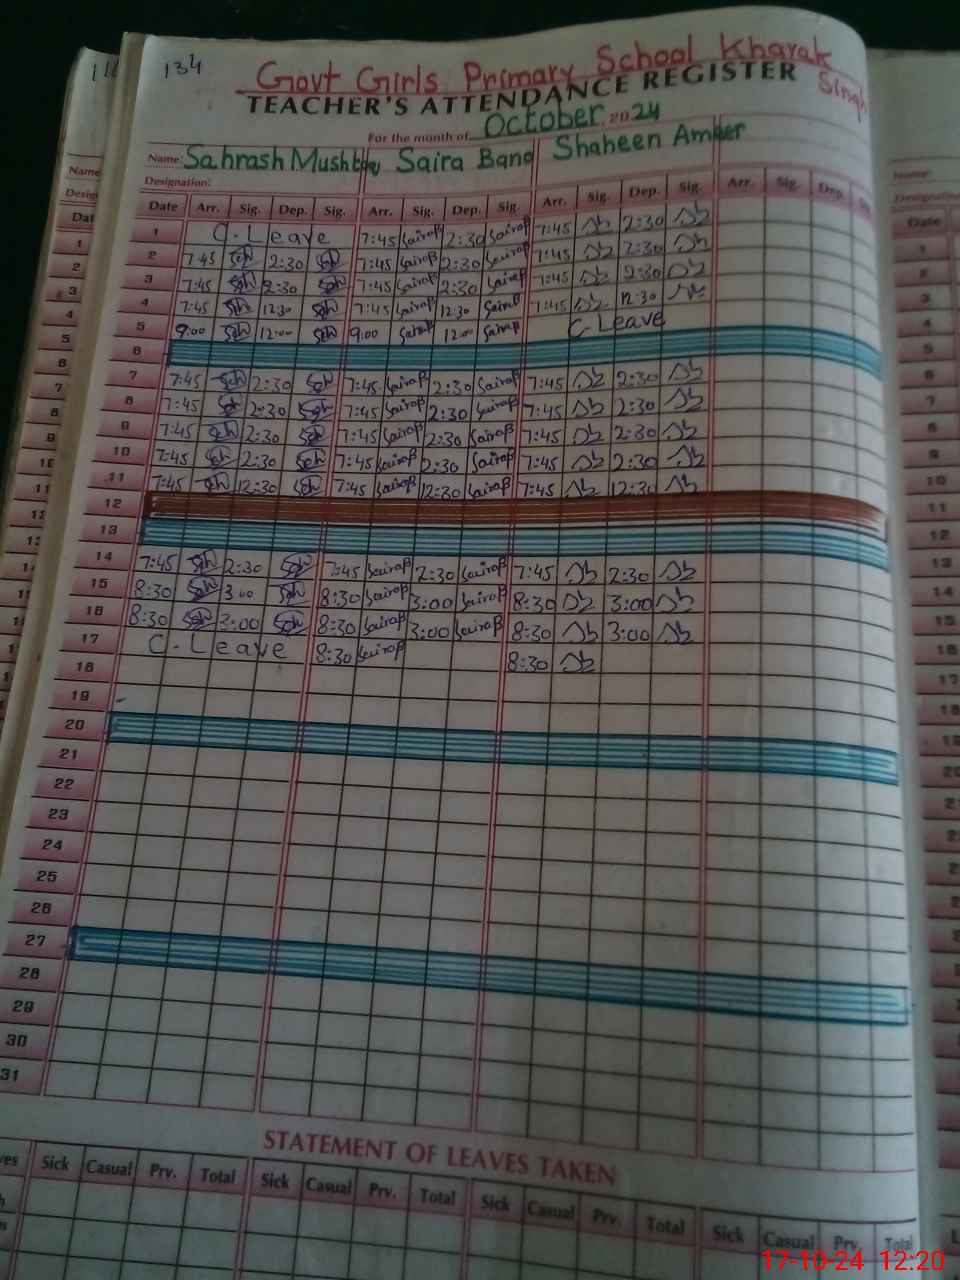 134
Govt Girls Primary School Kharak Singh
TEACHER'S ATTENDANCE REGISTER
For the month of October 2024
Name: Sahrash Mushtaq Saira Bano Shaheen Amber
Designation:
Date Arr. Sig. Dep. Sig. Arr. Sig. Dep. Sig. Arr. Sig. Dep. Sig. Arr. Sig. Dep.
1 C-Leave 7:45 SairaB 2:30 SairaB 7:45 2:30
2 7:45 Sch 2:30 Sch 7:45 SairaB 2:30 SairaB 7:45 2:30
3 7:45 Sch 2:30 Sch 7:45 SairaB 2:30 SairaB 7:45 2:30
4 7:45 Sch 12:30 Sch 7:45 SairaB 12:30 SairaB 7:45 12:30
5 9:00 Sch 12:00 Sch 9:00 SairaB 12:00 SairaB C-Leave
6
7 7:45 Sch 2:30 Sch 7:45 SairaB 2:30 SairaB 7:45 2:30
8 7:45 Sch 2:30 Sch 7:45 SairaB 2:30 SairaB 7:45 2:30
9 7:45 Sch 2:30 Sch 7:45 SairaB 2:30 SairaB 7:45 2:30
10 7:45 Sch 2:30 Sch 7:45 SairaB 2:30 SairaB 7:45 2:30
11 7:45 Sch 12:30 Sch 7:45 SairaB 12:30 SairaB 7:45 12:30
12
13
14 7:45 Sch 2:30 Sch 7:45 SairaB 2:30 SairaB 7:45 2:30
15 8:30 Sch 3:00 Sch 8:30 SairaB 3:00 SairaB 8:30 3:00
16 8:30 Sch 3:00 Sch 8:30 SairaB 3:00 SairaB 8:30 3:00
17 C-Leave 8:30 SairaB 8:30
18
19
20
21
22
23
24
25
26
27
28
29
30
31
STATEMENT OF LEAVES TAKEN
Sick Casual Prv. Total Sick Casual Prv. Total Sick Casual Prv. Total Sick Casual Prv. Total
17-10-24 12:20